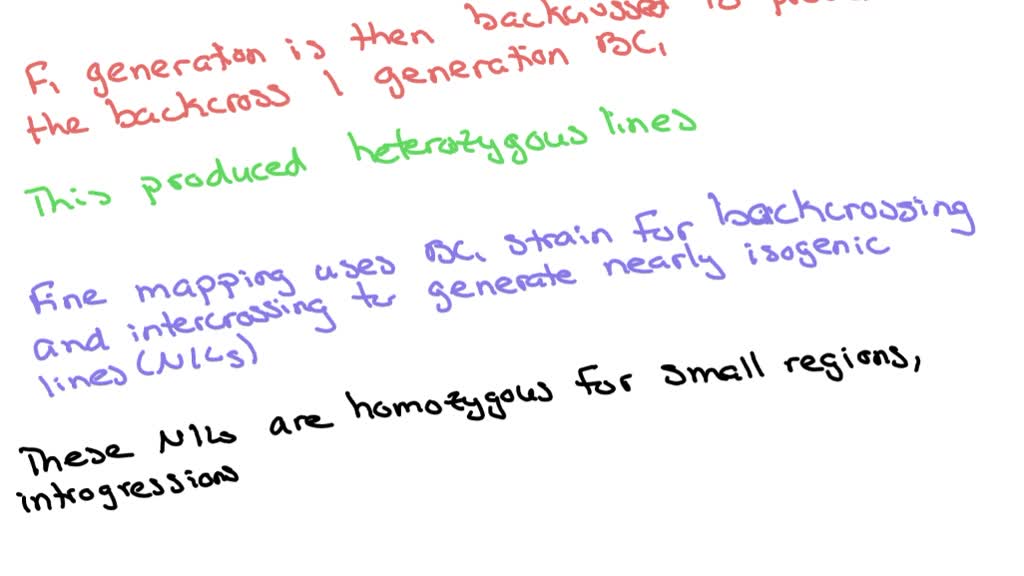 F₁ generation is then backcrossed to
the backcross 1 generation BC₁
This produced heterozygous lines
Fine mapping uses BC₁ strain for backcrossing
and intercrossing to generate nearly isogenic
lines (NILs)
These NILs are homozygous for small regions,
introgressions